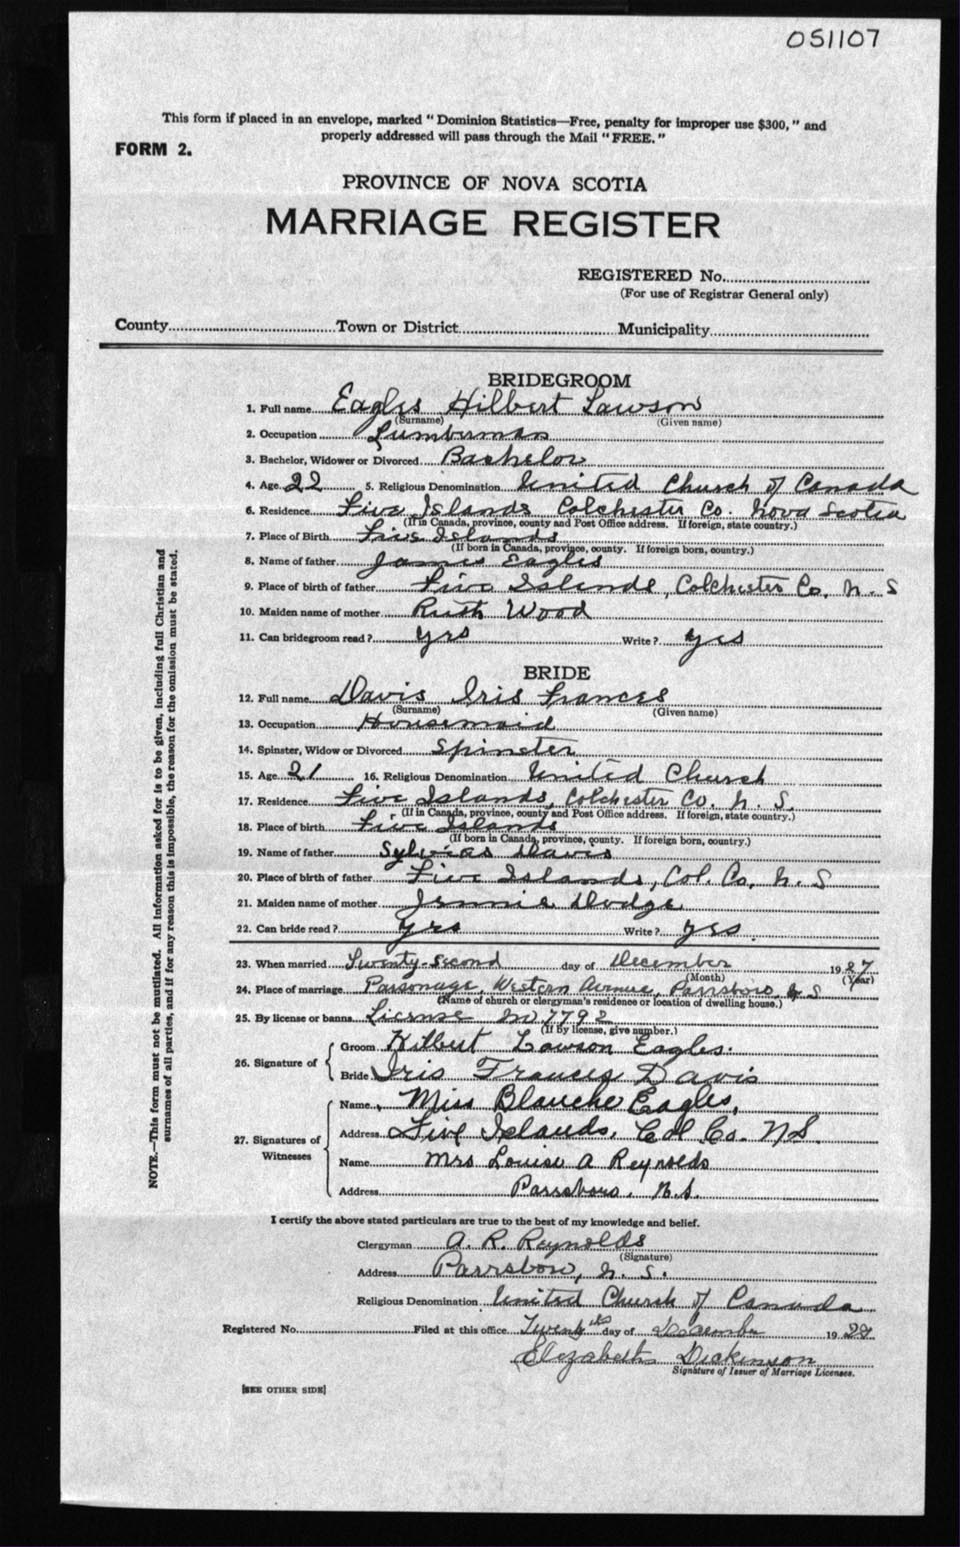 051107
This form if placed in an envelope, marked "Dominion Statistics—Free, penalty for improper use $300," and
properly addressed will pass through the Mail "FREE."
FORM 2.
PROVINCE OF NOVA SCOTIA
MARRIAGE REGISTER
REGISTERED No.
(For use of Registrar General only)
County Town or District Municipality
BRIDEGROOM
1. Full name Eagles Hilbert Lawson
(Surname) (Given name)
2. Occupation Lumberman
3. Bachelor, Widower or Divorced Bachelor
4. Age 22 5. Religious Denomination United Church of Canada
6. Residence Five Islands Colchester Co. Nova Scotia
(If in Canada, province, county and Post Office address. If foreign, state country.)
7. Place of Birth Five Islands
(If born in Canada, province, county. If foreign born, country.)
8. Name of father James Eagles
9. Place of birth of father Five Islands, Colchester Co. N. S
10. Maiden name of mother Ruth Wood
11. Can bridegroom read? yes Write? yes
BRIDE
12. Full name Davis Iris Frances
(Surname) (Given name)
13. Occupation Housemaid
14. Spinster, Widow or Divorced Spinster
15. Age 21 16. Religious Denomination United Church
17. Residence Five Islands, Colchester Co. N. S.
(If in Canada, province, county and Post Office address. If foreign, state country.)
18. Place of birth Five Islands
(If born in Canada, province, county. If foreign born, country.)
19. Name of father Davis
20. Place of birth of father Five Islands, Col. Co. N. S
21. Maiden name of mother Jennie Dodge
22. Can bride read? yes Write? yes.
23. When married Twenty-second day of December 1927
(Month) (Year)
24. Place of marriage Parsonage, Western Avenue, Parrsboro, N S
(Name of church or clergyman's residence or location of dwelling house.)
25. By license or banns License No 7792
(If by license, give number.)
26. Signature of
Groom Hilbert Lawson Eagles.
Bride Iris Frances Davis
27. Signatures of Witnesses
Name Miss Blanche Eagles,
Address Five Islands, Col Co. N.S.
Name Mrs Louise A Reynolds
Address Parrsboro. N.S.
I certify the above stated particulars are true to the best of my knowledge and belief.
Clergyman A. R. Reynolds
(Signature)
Address Parrsboro, N. S.
Religious Denomination United Church of Canada
Registered No. Filed at this office day of December 19
Elizabeth Dickinson
Signature of Issuer of Marriage Licenses.
[SEE OTHER SIDE]
NOTE.—This form must not be mutilated. All information asked for is to be given, including full Christian and
surnames of all parties, and if for any reason this is impossible, the reason for the omission must be stated.